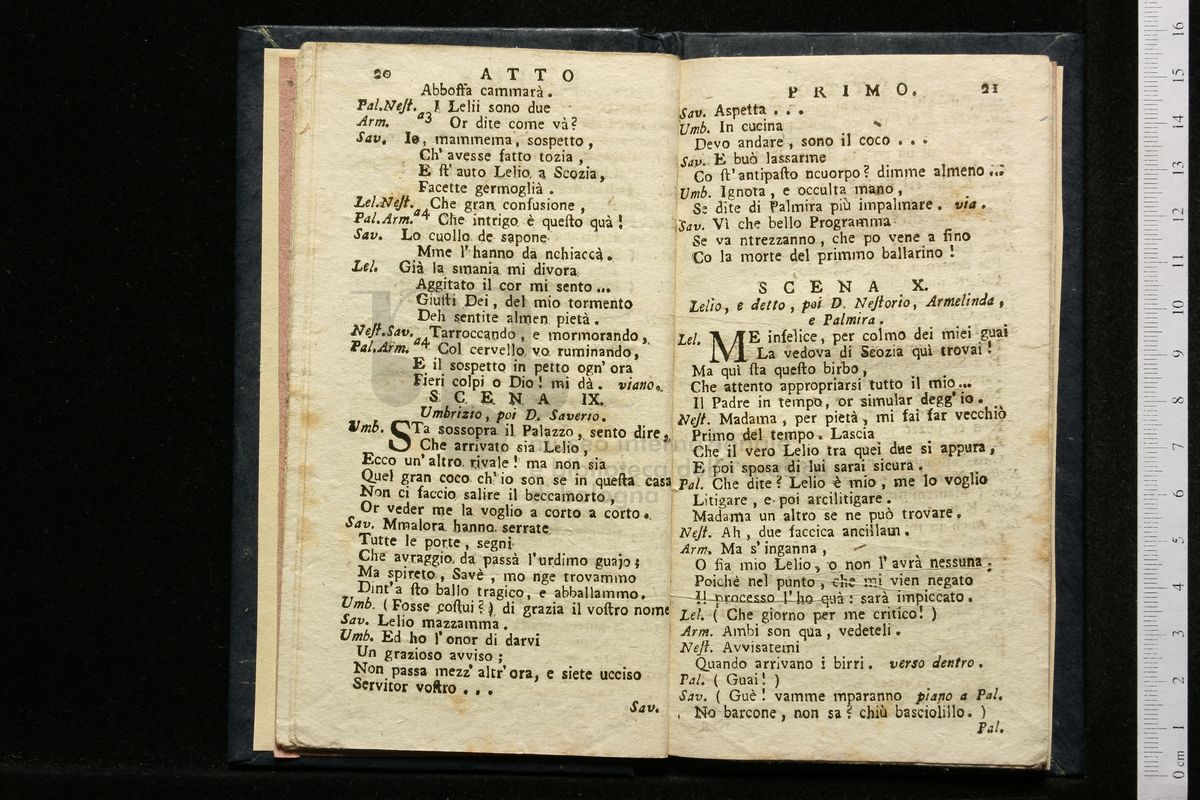 20 ATTO
Abboffa cammarà.
Pal.Neſt. I Lelii sono due
Arm. a3 Or dite come và?
Sav. Io, mammema, sospetto,
Ch' avesse fatto tozia,
E ſt' auto Lelio a Scozia,
Facette germoglià.
Lel.Neſt. Che gran confusione,
Pal.Arm. a4 Che intrigo è queſto quà!
Sav. Lo cuollo de sapone
Mme l' hanno da nchiaccà.
Lel. Già la smania mi divora
Aggitato il cor mi sento ...
Giuſti Dei, del mio tormento
Deh sentite almen pietà.
Neſt.Sav. Tarroccando, e mormorando,
Pal.Arm. a4 Col cervello vo ruminando,
E il sospetto in petto ogn' ora
Fieri colpi o Dio! mi dà. viano.
SCENA IX.
Umbrizio, poi D. Saverio.
Umb. STa sossopra il Palazzo, sento dire,
Che arrivato sia Lelio,
Ecco un' altro rivale! ma non sia
Quel gran coco ch' io son se in queſta casa
Non ci faccio salire il beccamorto,
Or veder me la voglio a corto a corto.
Sav. Mmalora hanno serrate
Tutte le porte, segni
Che avraggio da passà l' urdimo guajo;
Ma spireto, Savè, mo nge trovammo
Dint' a ſto ballo tragico, e abballammo.
Umb. (Fosse coſtui?) di grazia il voſtro nome
Sav. Lelio mazzamma.
Umb. Ed ho l' onor di darvi
Un grazioso avviso;
Non passa mezz' altr' ora, e siete ucciso
Servitor voſtro ...
Sav.
PRIMO. 21
Sav. Aspetta ...
Umb. In cucina
Devo andare, sono il coco ...
Sav. E buò lassarme
Co ſt' antipaſto ncuorpo? dimme almeno ...
Umb. Ignota, e occulta mano,
Se dite di Palmira più impalmare. via.
Sav. Vì che bello Programma
Se va ntrezzanno, che po vene a fino
Co la morte del primmo ballarino!
SCENA X.
Lelio, e detto, poi D. Neſtorio, Armelinda,
e Palmira.
Lel. ME infelice, per colmo dei miei guai
La vedova di Scozia quì trovai!
Ma quì ſta queſto birbo,
Che attento appropriarsi tutto il mio...
Il Padre in tempo, or simular degg' io.
Neſt. Madama, per pietà, mi fai far vecchiò
Primo del tempo. Lascia
Che il vero Lelio tra quei due si appura,
E poi sposa di lui sarai sicura.
Pal. Che dite? Lelio è mio, me lo voglio
Litigare, e poi arcilitigare.
Madama un altro se ne può trovare.
Neſt. Ah, due faccica ancillam.
Arm. Ma s' inganna,
O fia mio Lelio, o non l' avrà nessuna;
Poichè nel punto, che mi vien negato
Il processo l' ho quà: sarà impiccato.
Lel. (Che giorno per me critico!)
Arm. Ambi son qua, vedeteli.
Neſt. Avvisatemi
Quando arrivano i birri. verso dentro.
Pal. (Guai!)
Sav. (Guè! vamme mparanno piano a Pal.
No barcone, non sa? chiù basciolillo.)
Pal.